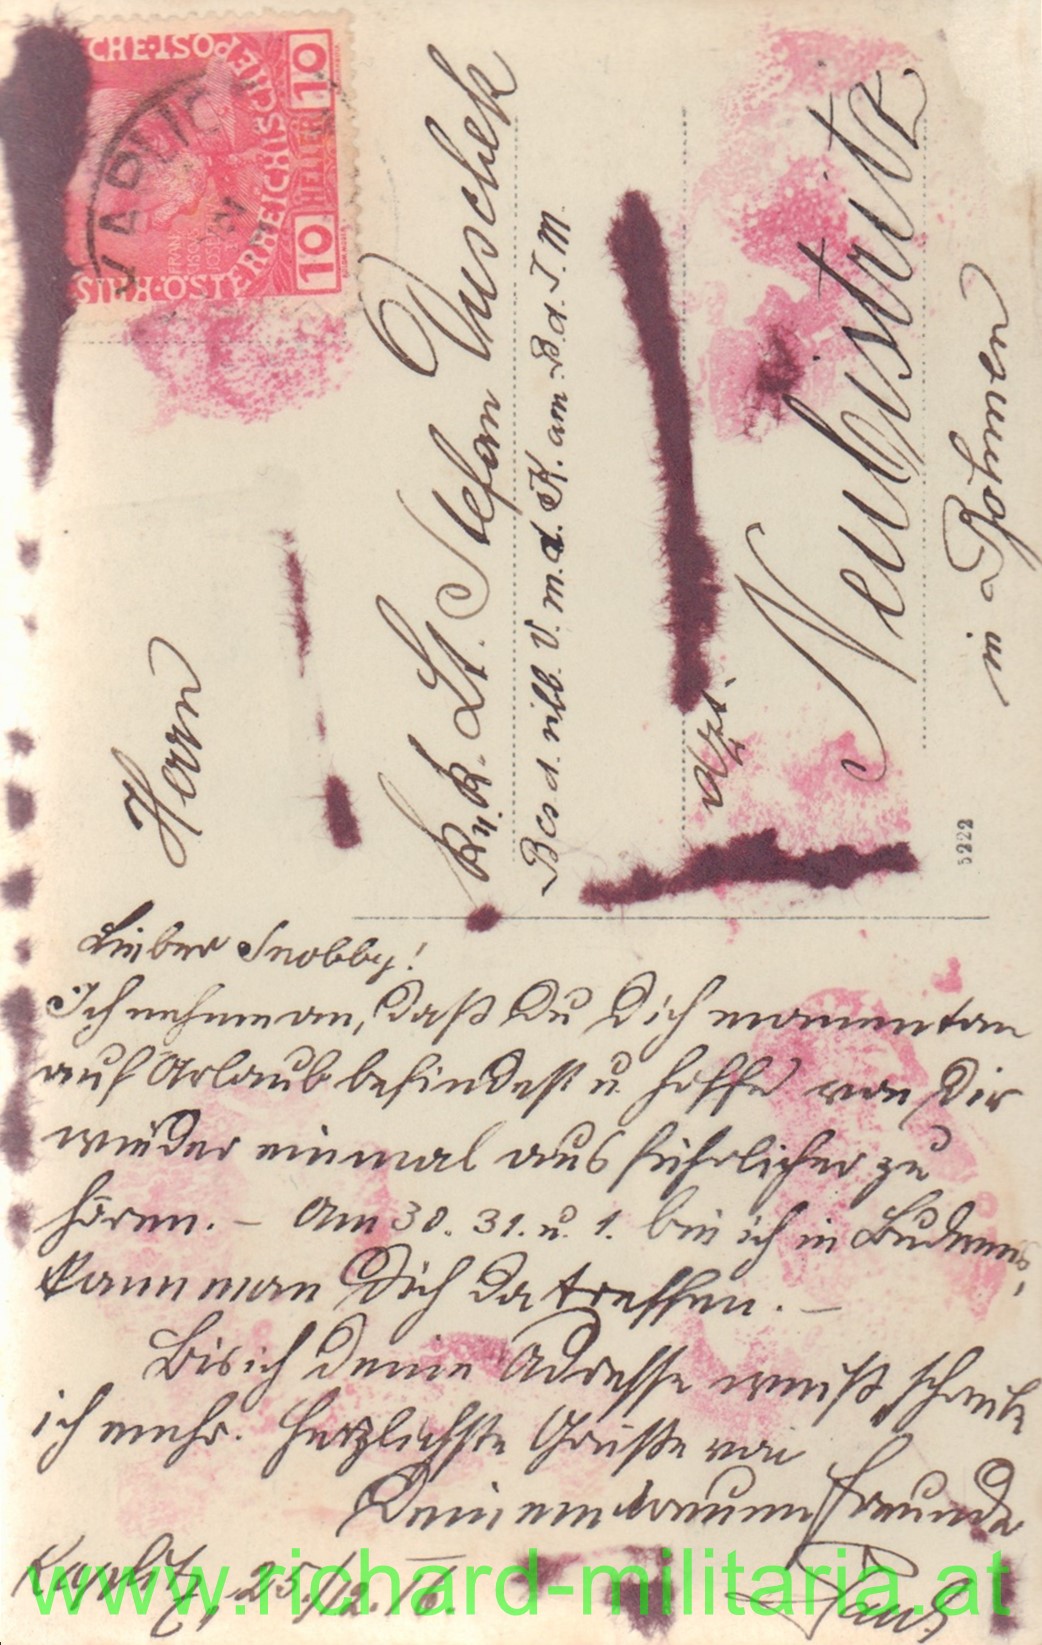 KAISERLICHE·KÖNIGLICHE·ÖSTERREICHISCHE·POST
10 HELLER 10
Herrn
k.u.k. Lt. Stefan Duschek
Bes. d. silb. V. m. d. K. am B. d. T. M.
dzt.
Neubistritz
in Böhmen
5222
Lieber Snobby!
Ich nehme an, daß Du Dich momentan
auf Urlaub befindest u. hoffe von Dir
wieder einmal ausführlicher zu
hören. – Am 30. 31. u. 1. bin ich in Budweis,
kann man Dich da treffen. –
Bis ich deine Adresse weiß schreibe
ich mehr. Herzlichste Grüße von
Deinem treuen Freunde
Kaplitz, 25./12. 16.
www.richard-militaria.at